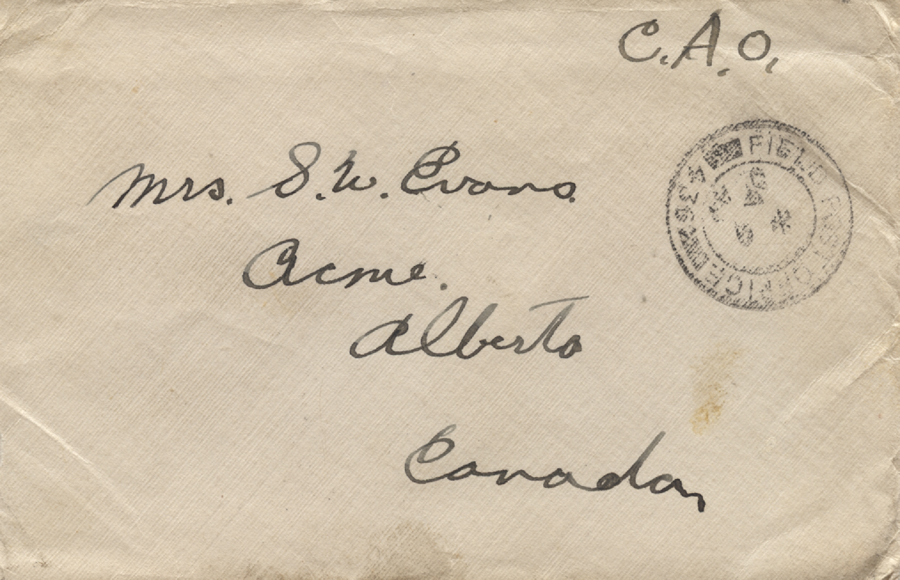 C.A.O.
FIELD POST OFFICE
436
Mrs. S. W. Evans.
Acme.
Alberta
Canada,